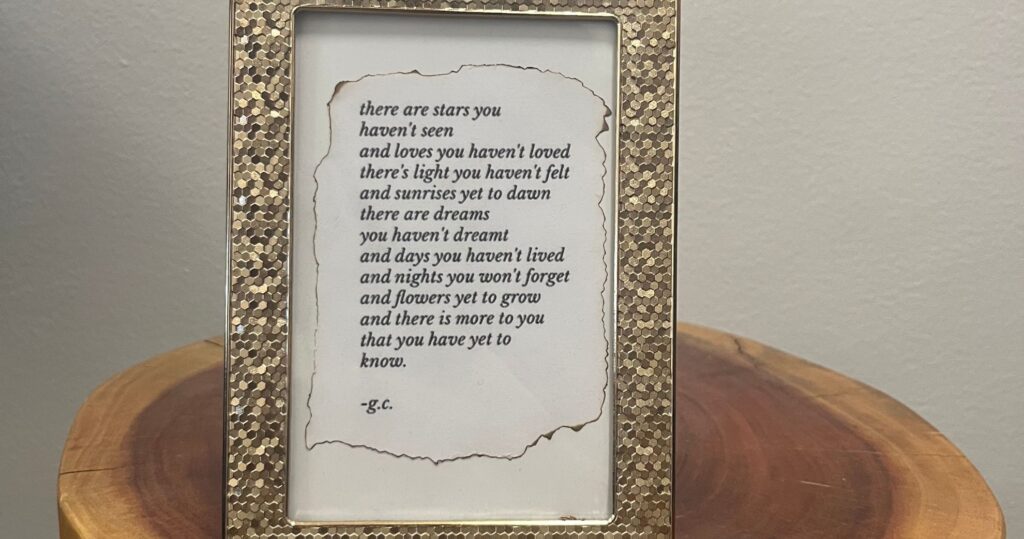 there are stars you
haven't seen
and loves you haven't loved
there's light you haven't felt
and sunrises yet to dawn
there are dreams
you haven't dreamt
and days you haven't lived
and nights you won't forget
and flowers yet to grow
and there is more to you
that you have yet to
know.
-g.c.